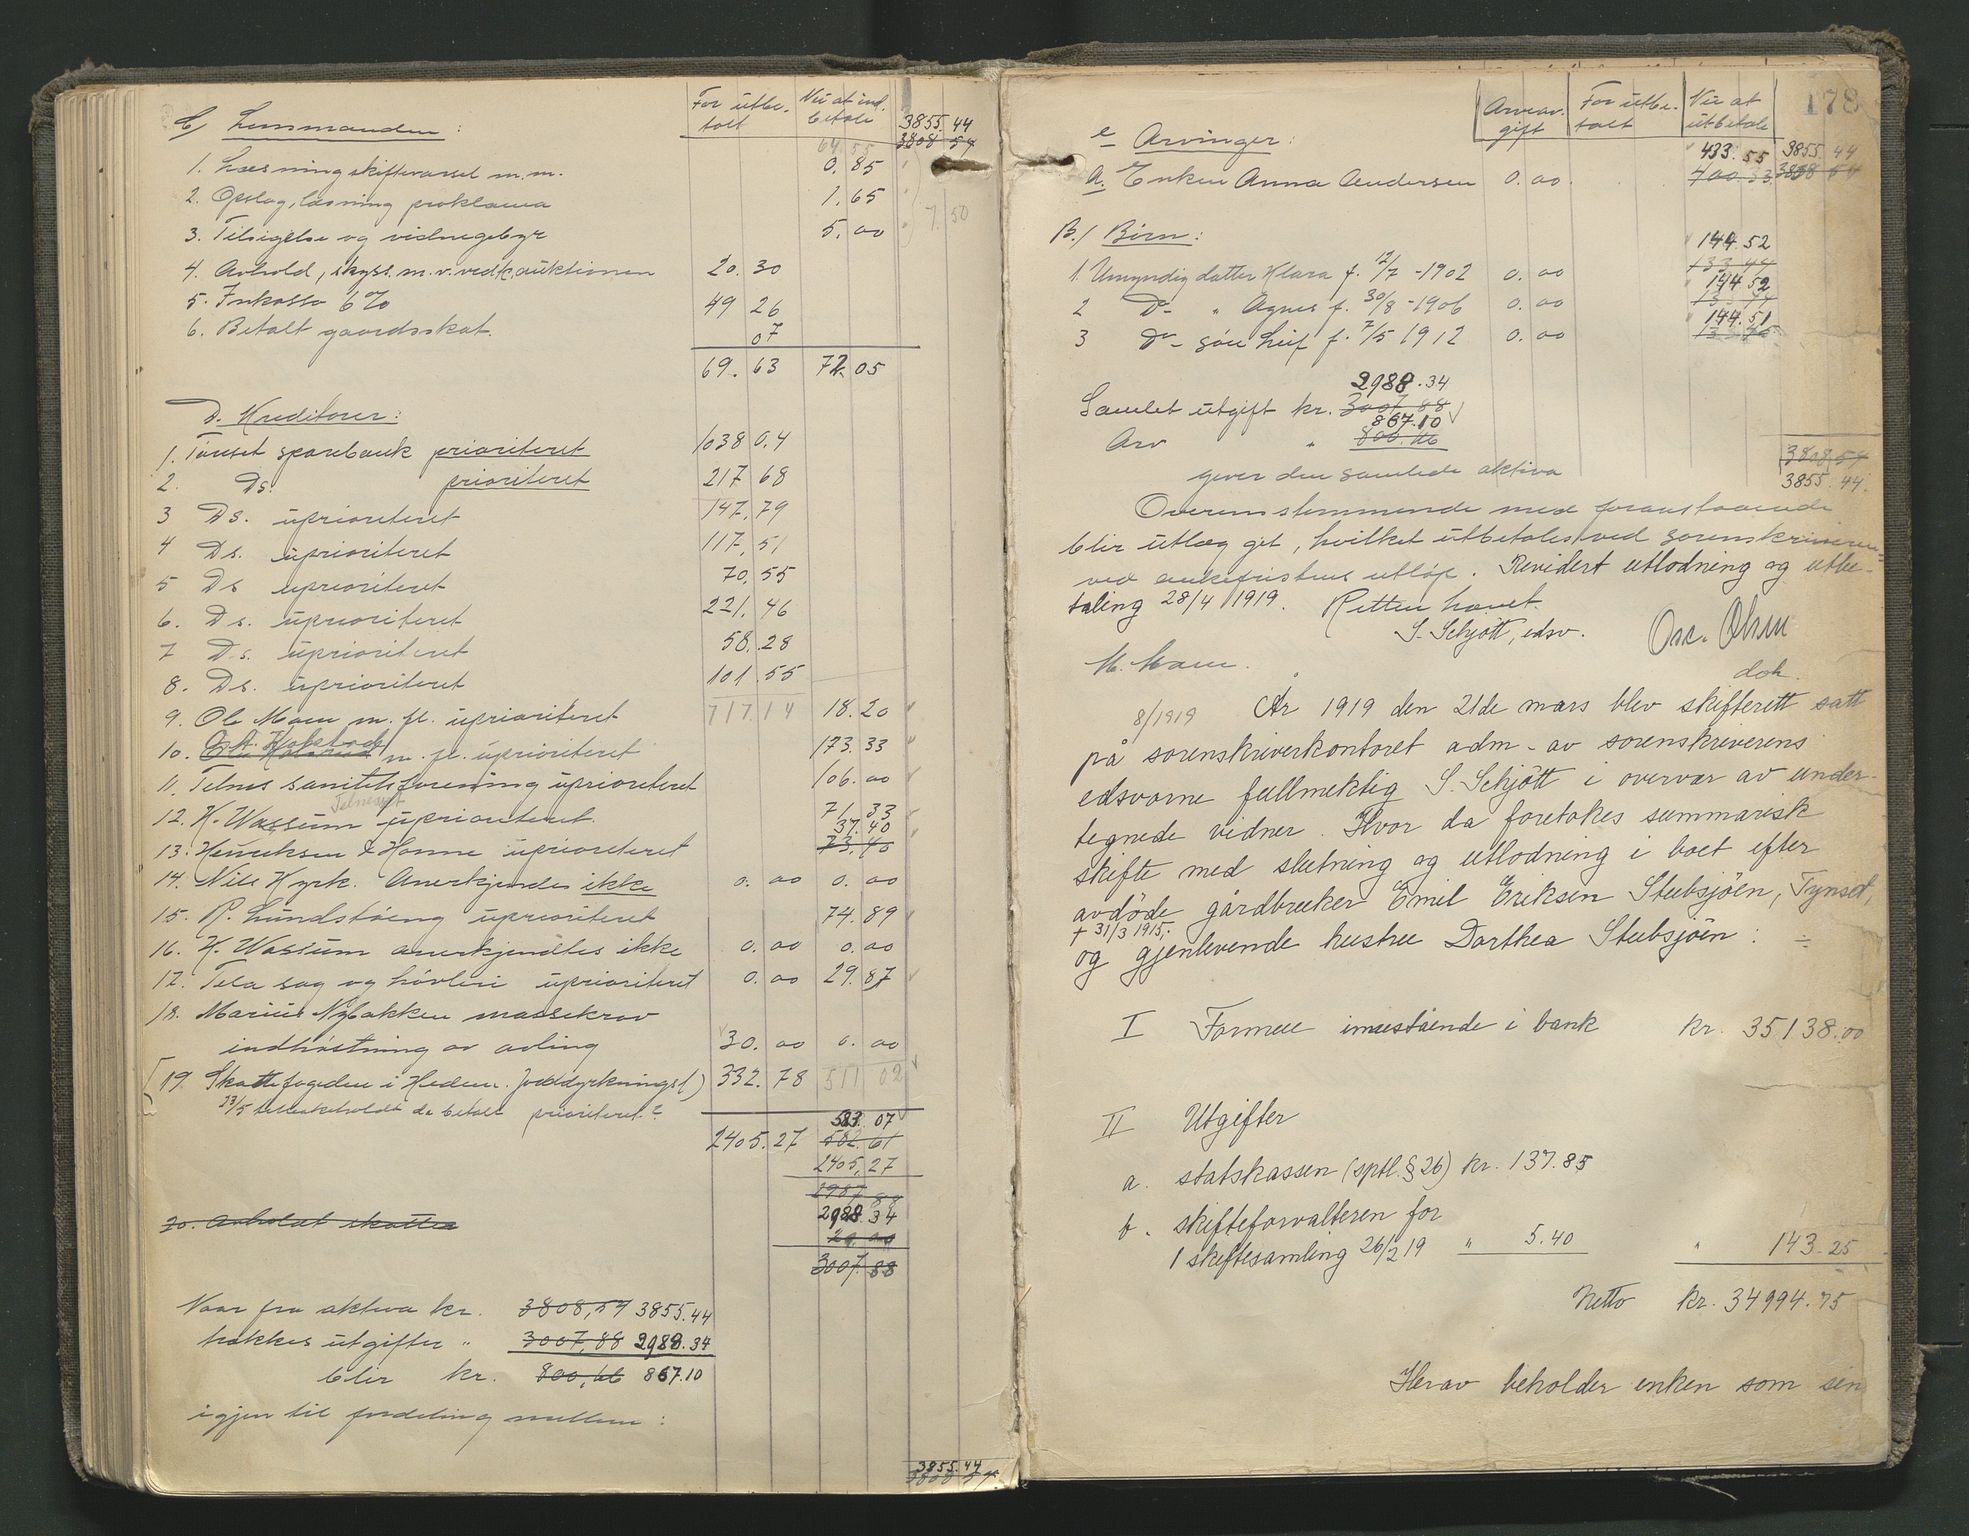 C/ Lensmanden : For utbe- Nu at ind.
talt betale 3855.44
64.55 3808 54
1. Læsning skiftevarsel m.m. 0.85
2. Opslag, læsning proklama 1.65
3. Tilsigelse og vidnegebyr 5.00 7.50
4. Avhold, skyss m.v. ved auktionen 20.30
5. Inkasso 6% 49 26
6. Betalt gaardsskat. 07
69.63 72.05
D. Kreditorer:
1. Tønset sparebank prioritert 1038 0.4
2. Ds. prioriteret 217 68
3 Ds. uprioriteret 147.79
4 Ds. uprioriteret 117.51
5 Ds uprioriteret 70.55
6. Ds. uprioriteret 221.46
7 Ds. uprioriteret 58.28
8. Ds. uprioriteret 101.55
9. Ole Moen m. fl. uprioriteret 717.14 18.20
10. m. fl. uprioriteret 173.33
11. Telnes sanitetsforening uprioriteret 106.00
Telneset
12. K. Wassum uprioriteret. 71.33
37.40
13. Henriksen & Honne uprioriteret 73.40
14. Nils Kyrk. Anerkjendes ikke 0.00 0.00
15. P. Lundstøeng uprioriteret 74.89
16. K. Wassum anerkjendtes ikke 0.00 0.00
17. Tela sag og høvleri uprioriteret 0.00 29.87
18. Marius Nybakken massekrav
indhøstning av avling 30.00 0.00
19. Skattefogden i Hedem. (jorddyrkningsl) 332.78 511 02
23/5 tilbakeholdt da betalt prioriteret?
583.07
2405.27 582.61
2405,27
2987 88
2988.34
20. Avholdt skatter 20.00
3007.88
Naar fra aktiva kr. 3808,54 3855.44
trækkes utgifter " 3007,88 2988.34
blir kr. 800,66 867.10
igjen til fordeling mellem :
3855.44
3808 54
178
Arveav- For utbe- Nu at
gift talt utbetale
e Arvinger :
433.55 3855.44
a. Enken Anna Andersen 0.00 400.33 3808 54
B./ Børn :
144.52
1. Umyndig datter Klara f. 2/2 -1902 0.00 133 44
144 52
2 Do " Agnes f. 30/8 -1906 0.00
144.51
3 Do søn Leif f. 7/5 1912 0.00
2988.34
Samlet utgift kr. 3007 88
867.10
Arv " 800.66
3808 54
giver den samlede aktiva 3855.44.
Overensstemmende med foranstaaende
blir utlæg get, hvilket utbetales ved sorenskriveren
ved ankefristens utløp. Revidert utlodning og utbe-
taling 28/4 1919. Retten hævet.
S. Schjøtt, edsv. Osc. Olsen
M. Moen. dok.
8/1919 År 1919 den 21de mars blev skifterett satt
på sorenskriverkontoret adm. av sorenskriverens
edsvorne fullmektig S. Schjøtt i overvær av under-
tegnede vidner. Hvor da foretokes summarisk
skifte med slutning og utlodning i boet efter
avdøde gårdbruker Emil Eriksen Stubsjøen, Tynset,
† 31/3 1915,
og gjenlevende hustru Dorthea Stubsjøen : ÷
I Formue innestående i bank kr. 35138.00
II Utgifter
a. statskassen (sptl. § 26) kr. 137.85
b. skifteforvalteren for
1 skiftesamling 26/2 19 " 5.40 " 143.25
Netto kr. 34994.75
Herav beholder enken som sin